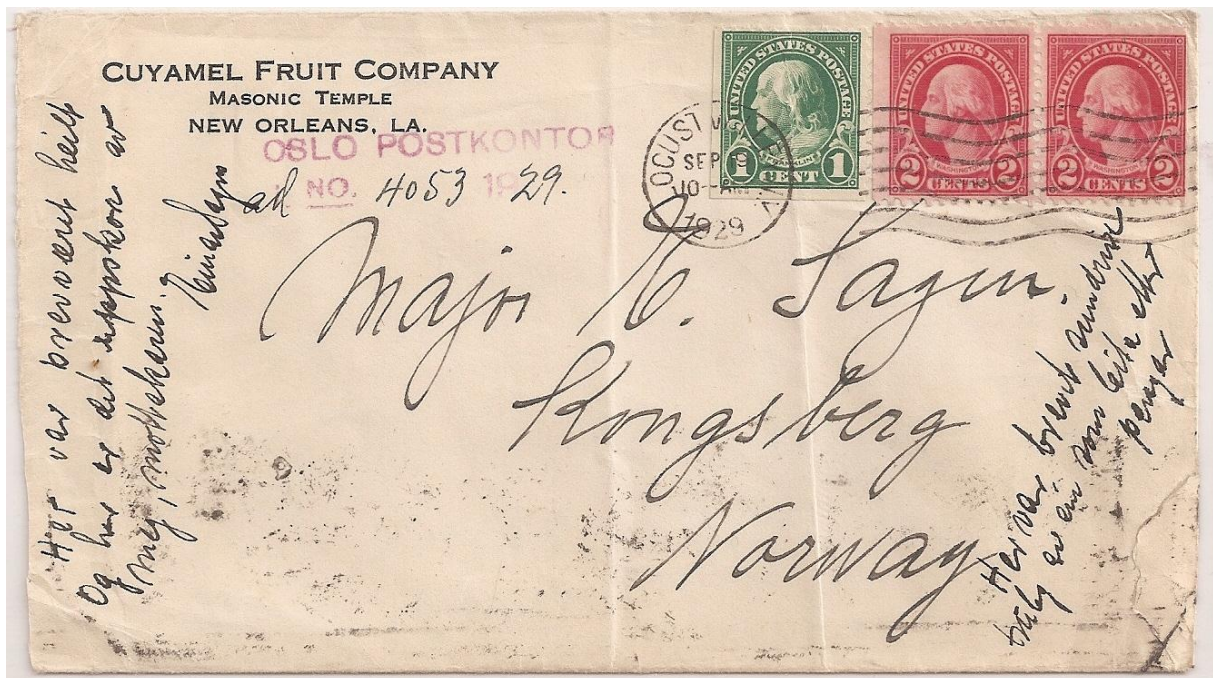 CUYAMEL FRUIT COMPANY
MASONIC TEMPLE
NEW ORLEANS, LA.
OSLO POSTKONTOR
NO. 4053 19 29.
UNITED STATES POSTAGE
FRANKLIN
1 CENT 1
UNITED STATES POSTAGE
WASHINGTON
2 CENTS 2
UNITED STATES POSTAGE
WASHINGTON
2 CENTS 2
LOCUST VALLEY
SEP 19
10-AM
1929
N.Y.
Major
Sagen.
Kongsberg
Norway
Her var brevet heilt
Og her er det oppskore av
meg, mottakaren.
Her var brevet sundrive
av ein som leita etter
pengar